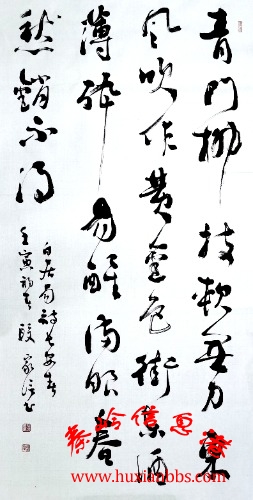 青门柳枝软无力东
风吹作黄金色街东酒
薄醉易醒满眼春
愁销不得
白居易诗长安春
壬寅初夏 段家
www.huxianbbs.com